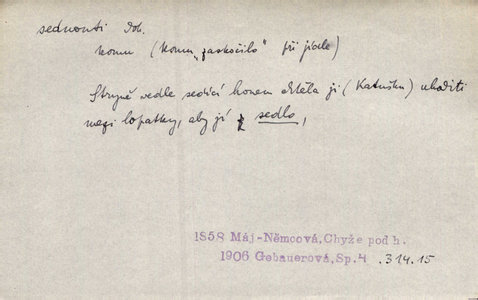 sednouti dok.
komu (komu „zaskočilo" při jídle)
Stryně vedle sedící honem chtěla ji (Katušku) uhoditi
mezi lopatky, aby jí sedlo,
1858 Máj-Němcová, Chyže pod h.
1906 Gebauerová, Sp.4 .314.15